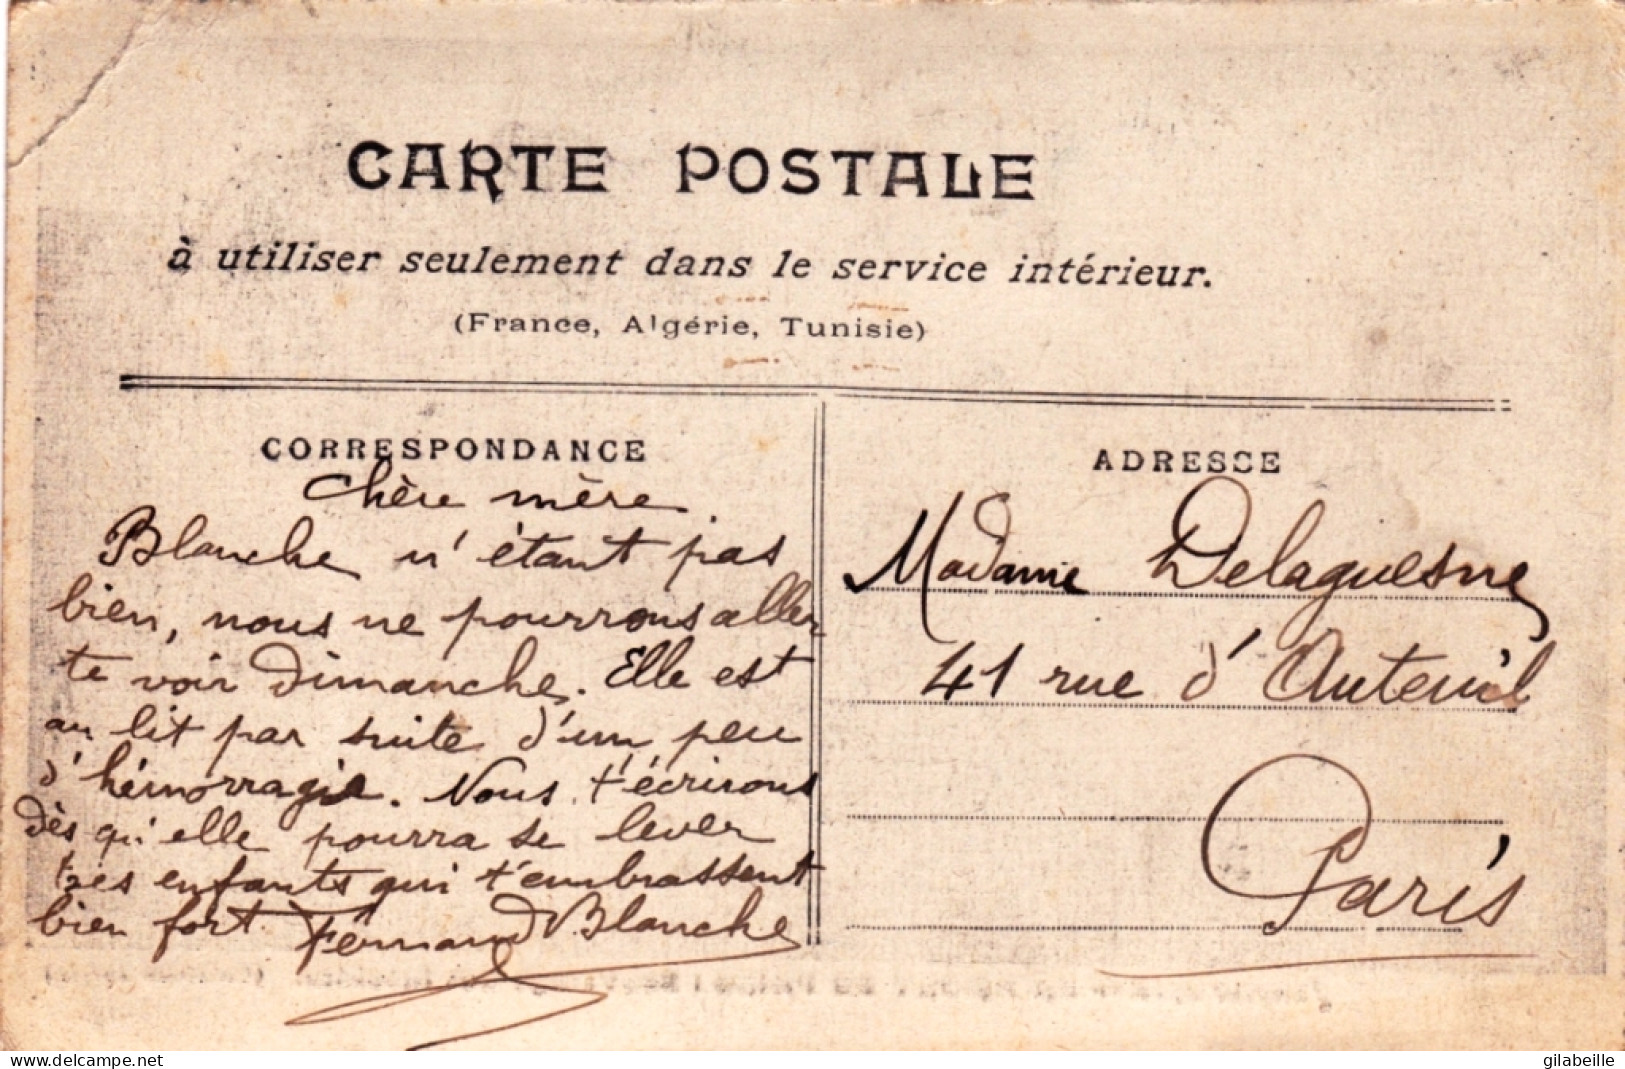 CARTE POSTALE
à utiliser seulement dans le service intérieur.
(France, Algérie, Tunisie)
CORRESPONDANCE
Chère mère
Blanche n'étant pas
bien, nous ne pourrons aller
te voir Dimanche. Elle est
au lit par suite d'un peu
d'hémorragie. Nous t'écrirons
dès qu'elle pourra se lever
tes enfants qui t'embrassent
bien fort Fernand Blanche
ADRESSE
Madame Delaguesne
41 rue d'Auteuil
Paris
delcampe.net
gilabeille